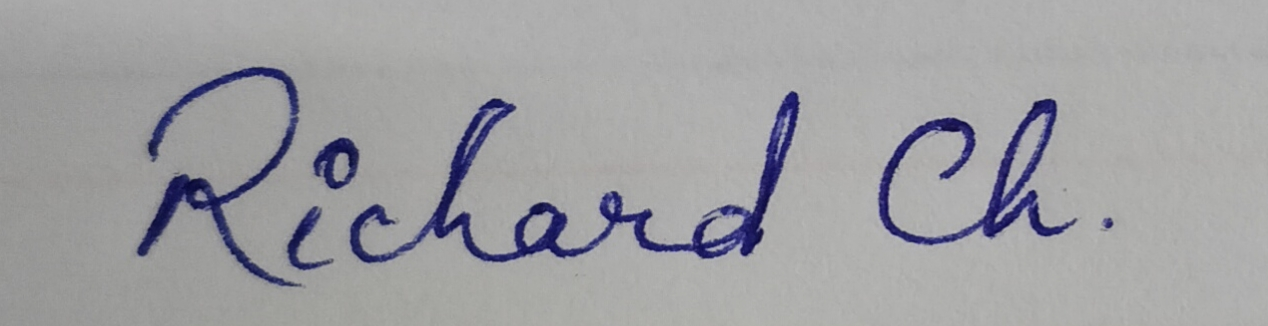 Richard Ch.